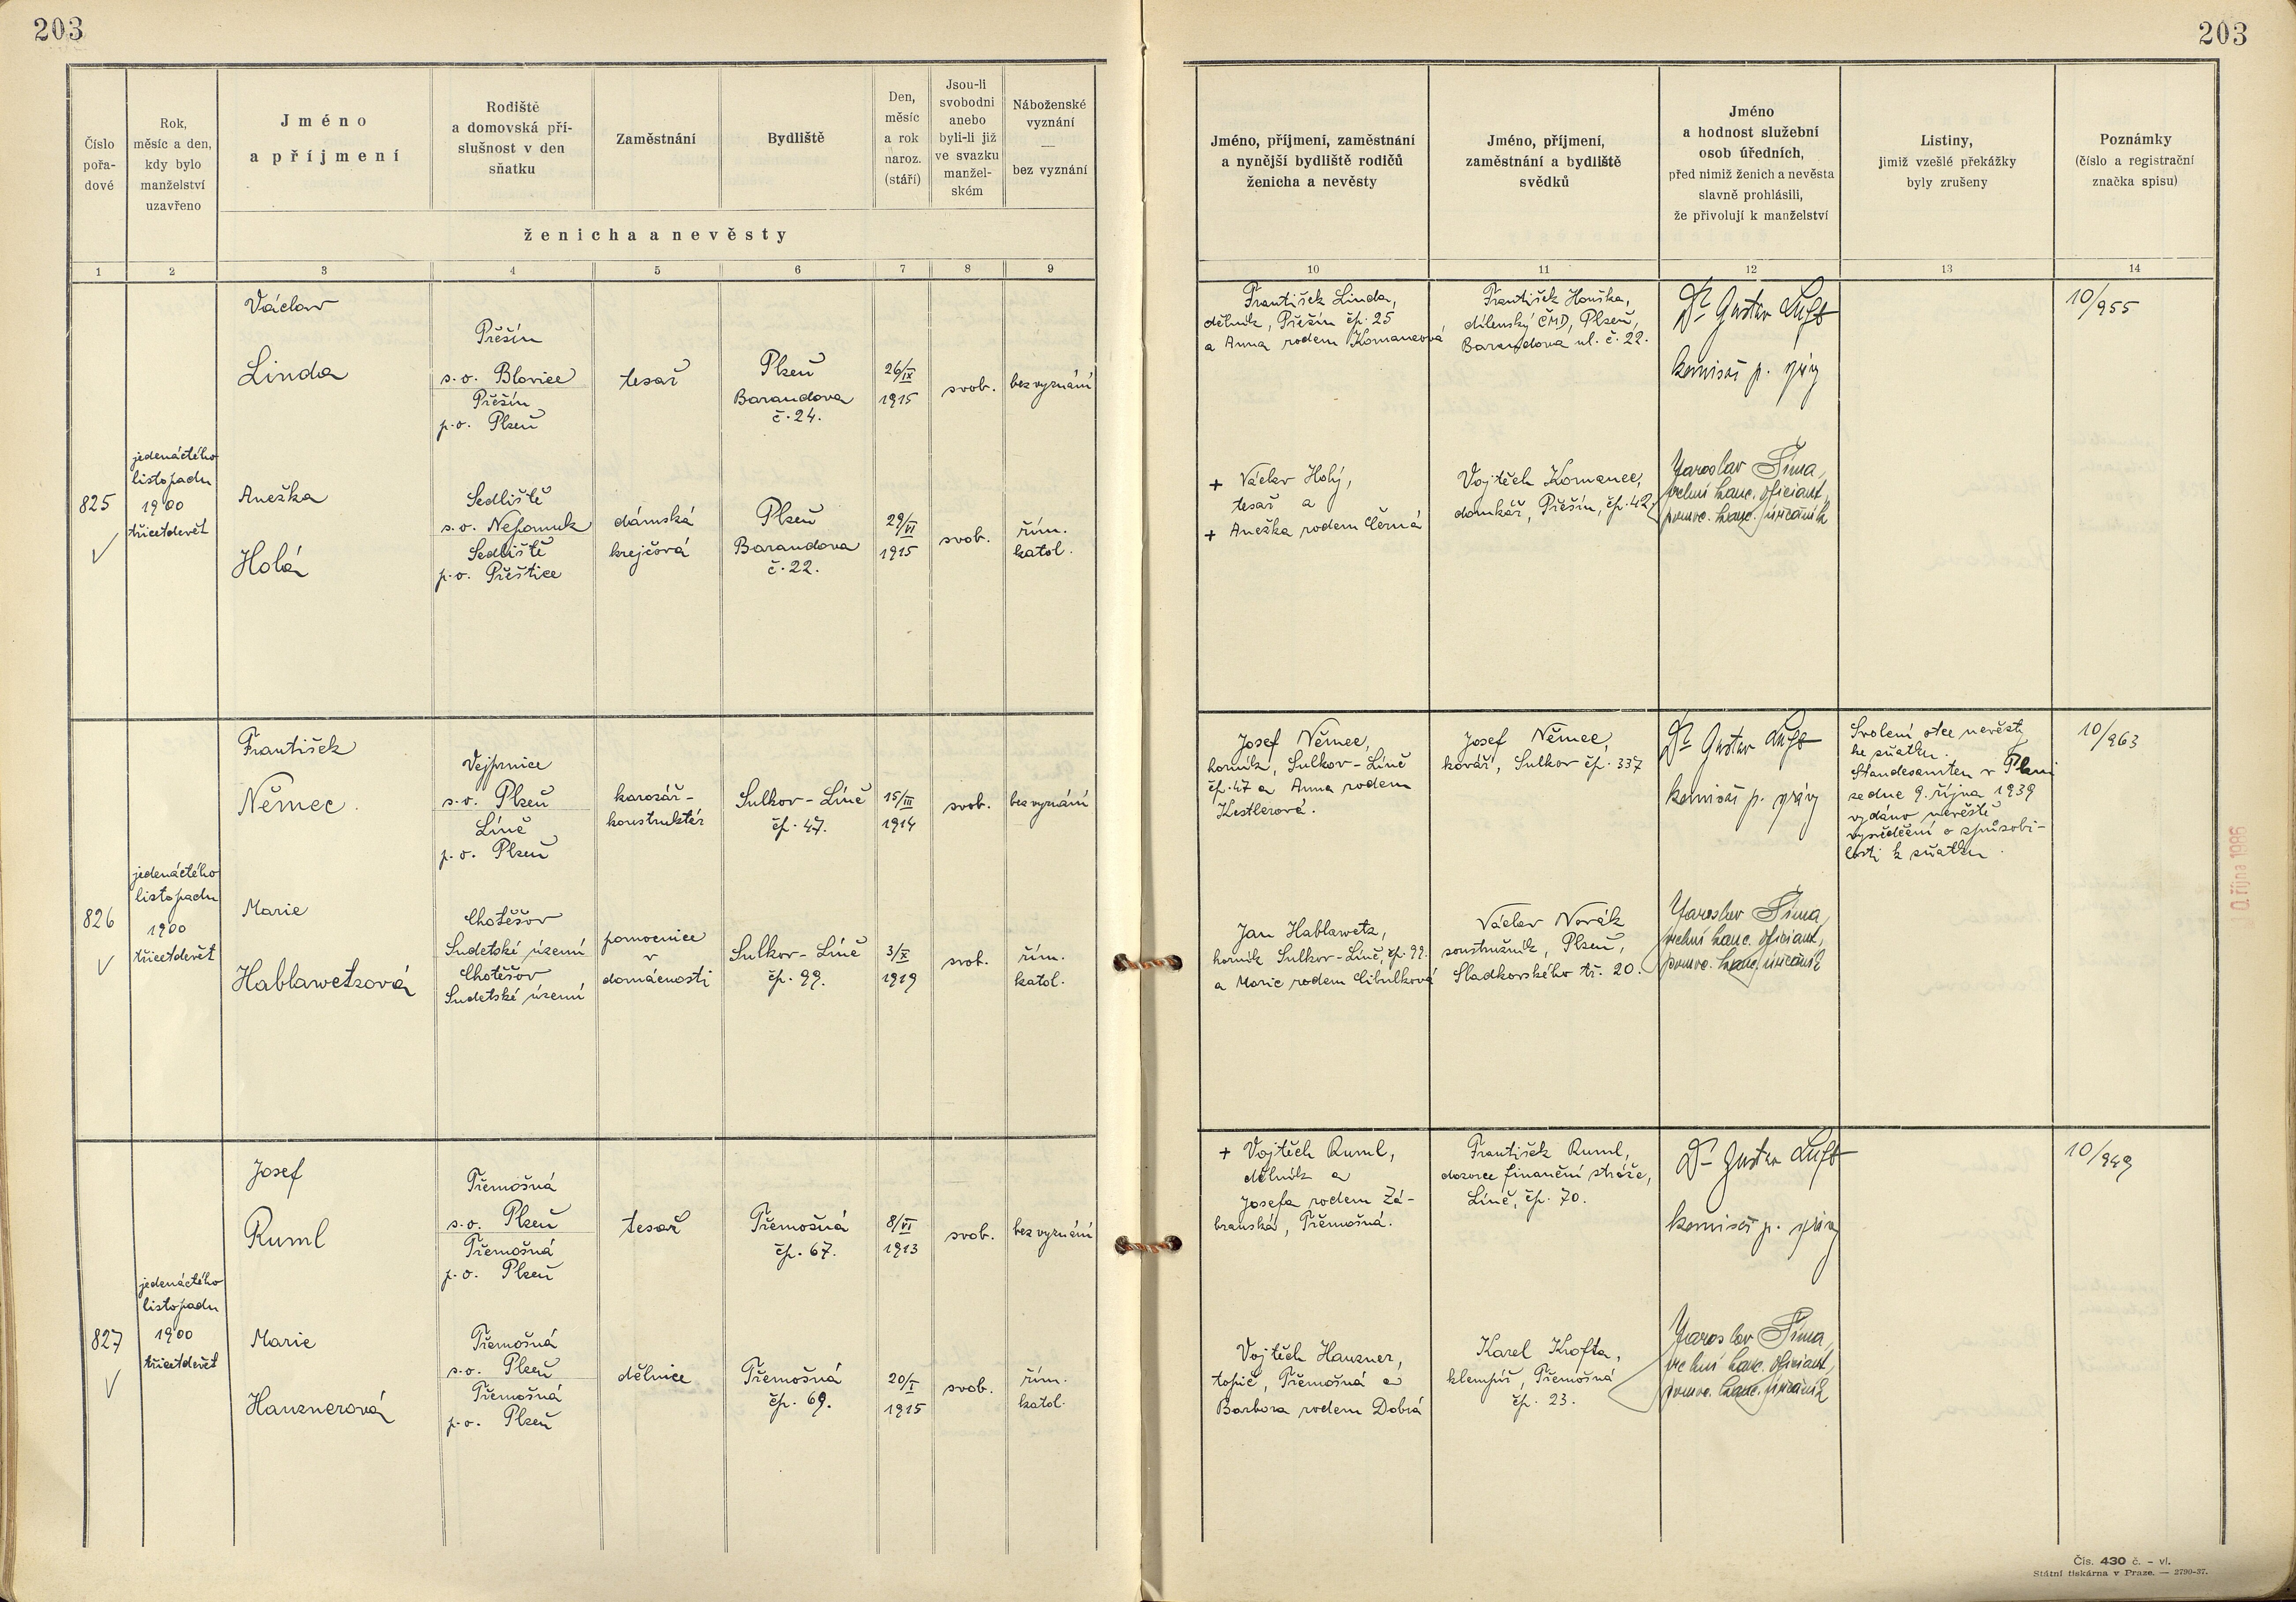 203
203
Číslo pořa- dové
Rok, měsíc a den, kdy bylo manželství uzavřeno
Jméno a příjmení
Rodiště a domovská pří- slušnost v den sňatku
Zaměstnání
Bydliště
Den, měsíc a rok naroz. (stáří)
Jsou-li svobodni anebo byli-li již ve svazku manžel- ském
Náboženské vyznání — bez vyznání
ženicha a nevěsty
Jméno, příjmení, zaměstnání a nynější bydliště rodičů ženicha a nevěsty
Jméno, příjmení, zaměstnání a bydliště svědků
Jméno a hodnost služební osob úředních, před nimiž ženich a nevěsta slavně prohlásili, že přivolují k manželství
Listiny, jimiž vzešlé překážky byly zrušeny
Poznámky (číslo a registrační značka spisu)
1 2 3 4 5 6 7 8 9 10 11 12 13 14
825
jedenáctého
listopadu
1900
třicetdevět
Václav
Linda
Přešín
s. o. Blovice
Přešín
p. o. Plzeň
tesař
Plzeň
Barandova
č. 24.
26/IX
1915
svob.
bez vyznání
František Linda,
dělník, Přešín čp. 25
a Anna rodem Komancová
František Houška,
dílenský ČMD, Plzeň,
Barandova ul. č. 22.
Dr Gustav Luft
komisař p. správy
10/955
Aneška
Holá
Sedliště
s. o. Nepomuk
Sedliště
p. o. Přeštice
dámská
krejčová
Plzeň
Barandova
č. 22.
29/VI
1915
svob.
řím.
katol.
+ Václav Holý,
tesař a
+ Aneška rodem Černá
Vojtěch Komanec,
domkář, Přešín, čp. 42.
Jaroslav Šíma,
vrchní kanc. oficiant,
pomoc. kanc. úředník
826
jedenáctého
listopadu
1900
třicetdevět
František
Němec.
Vejprnice
s. o. Plzeň
Líně
p. o. Plzeň
karosář-
konstruktér
Sulkov - Líně
čp. 47.
15/III
1914
svob.
bez vyznání
Josef Němec,
horník, Sulkov - Líně
čp. 47 a Anna rodem
Kestlerová.
Josef Němec,
kovář, Sulkov čp. 337
Dr Gustav Luft
komisař p. správy
Svolení otce nevěsty
ke sňatku.
Standesamten v Plzni
ze dne 9. října 1939
vydáno nevěstě
vysvědčení o způsobi-
losti k sňatku.
10/963
Marie
Hablawetzová
Chotěšov
Sudetské území
Chotěšov
Sudetské území
pomocnice
v
domácnosti
Sulkov - Líně
čp. 99.
3/X
1919
svob.
řím.
katol.
Jan Hablawetz,
horník Sulkov - Líně, čp. 99.
a Marie rodem Cibulková
Václav Novák
soustružník, Plzeň,
Sladkovského tř. 20.
Jaroslav Šíma,
vrchní kanc. oficiant,
pomoc. kanc. úředník
827
jedenáctého
listopadu
1900
třicetdevět
Josef
Ruml
Třemošná
s. o. Plzeň
Třemošná
p. o. Plzeň
tesař
Třemošná
čp. 67.
8/VI
1913
svob.
bez vyznání
+ Vojtěch Ruml,
dělník a
Josefa rodem Zá-
branská, Třemošná.
František Ruml,
dozorce finanční stráže,
Líně, čp. 70.
Dr Gustav Luft
komisař p. správy
10/949
Marie
Hauznerová
Třemošná
s. o. Plzeň
Třemošná
p. o. Plzeň
dělnice
Třemošná
čp. 69.
20/I
1915
svob.
řím.
katol.
Vojtěch Hauzner,
topič, Třemošná a
Barbora rodem Dobrá
Karel Krofta,
klempíř, Třemošná
čp. 23.
Jaroslav Šíma,
vrchní kanc. oficiant,
pomoc. kanc. úředník
října 1986
Čís. 430 č. - vl.
Státní tiskárna v Praze. — 2790-37.